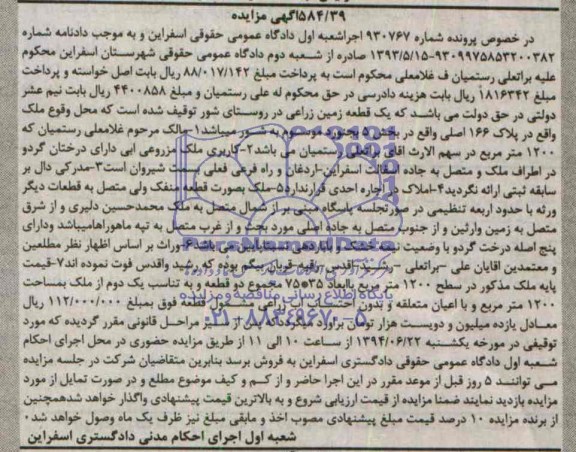 ۵۸۴/۳۹آگهی مزایده
در خصوص پرونده شماره ۹۳۰۷۶۷ اجراشعبه اول دادگاه عمومی حقوقی اسفراین و به موجب دادنامه شماره
۹۳۰۹۹۷۵۸۵۳۲۰۰۳۸۲-۱۳۹۳/۵/۱۵ صادره از شعبه دوم دادگاه عمومی حقوقی شهرستان اسفراین محکوم
علیه براتعلی رستمیان ف غلامعلی محکوم است به پرداخت مبلغ ۸۸/۰۱۷/۱۴۲ ریال بابت اصل خواسته و پرداخت
مبلغ ۱۸۱۶۳۴۲ ریال بابت هزینه دادرسی در حق محکوم له علی رستمیان و مبلغ ۴۴۰۰۸۵۸ ریال بابت نیم عشر
دولتی در حق دولت می باشد که یک قطعه زمین زراعی در روستای شور توقیف شده است که محل وقوع ملک
واقع در پلاک ۱۶۶ اصلی واقع در بخش ۵ بجنورد موسوم به شور میباشد۱-مالک مرحوم غلامعلی رستمیان که
۱۲۰۰ متر مربع در سهم الارث اقای براتعلی رستمیان می باشد۲-کاربری ملک مزروعی ابی دارای درختان گردو
در اطراف ملک و متصل به جاده اسفالت اسفراین-اردغان و راه فرعی فعلی بسمت شیروان است۳-مدرکی دال بر
سابقه ثبتی ارائه نگردید۴-املاک در اجاره احدی قرارندارد۵-ملک بصورت قطعه منفک ولی متصل به قطعات دیگر
ورثه با حدود اربعه تنظیمی در صورتجلسه پاسگاه مبنی بر از شمال متصل به ملک محمدحسین دلیری و از شرق
متصل به زمین وارثین و از جنوب متصل به جاده اصلی مورد بحث و از غرب متصل به تپه ماهورهامیباشد ودارای
پنج اصله درخت گردو با وضعیت نیمه خشک
و معتمدین اقایان علی -براتعلی
پایه ملک مذکور در سطح ۱۲۰۰ متر مربع باابعاد ۳۵*۷۵ مجموع دو قطعه و به تناسب یک دوم از ملک بمساحت
۱۲۰۰ متر مربع و با اعیان متعلقه و بدون احتساب آب زراعی مشمول قطعه فوق بمبلغ ۱۱۲/۰۰۰/۰۰۰ ریال
معادل یازده میلیون و دویست هزار تومان براورد میگردد که پس از سیر مراحل قانونی مقرر گردیده که مورد
توقیفی در مورخه یکشنبه ۱۳۹۴/۰۶/۲۲ از ساعت ۱۰ الی ۱۱ از طریق مزایده حضوری در محل اجرای احکام
شعبه اول دادگاه عمومی حقوقی دادگستری اسفراین به فروش برسد بنابرین متقاضیان شرکت در جلسه مزایده
می توانند ۵ روز قبل از موعد مقرر در این اجرا حاضر و از کم و کیف موضوع مطلع و در صورت تمایل از مورد
مزایده بازدید نمایند ضمنا مزایده از قیمت ارزیابی شروع و به بالاترین قیمت پیشنهادی واگذار خواهد شدهمچنین
از برنده مزایده ۱۰ درصد قیمت مبلغ پیشنهادی مصوب اخذ و مابقی مبلغ نیز ظرف یک ماه وصول خواهد شد۰
شعبه اول اجرای احکام مدنی دادگستری اسفراین
پایگاه اطلاع رسانی مناقصه و مزایده
۰۲۱-۸۸۳۴۹۶۷۰-۵